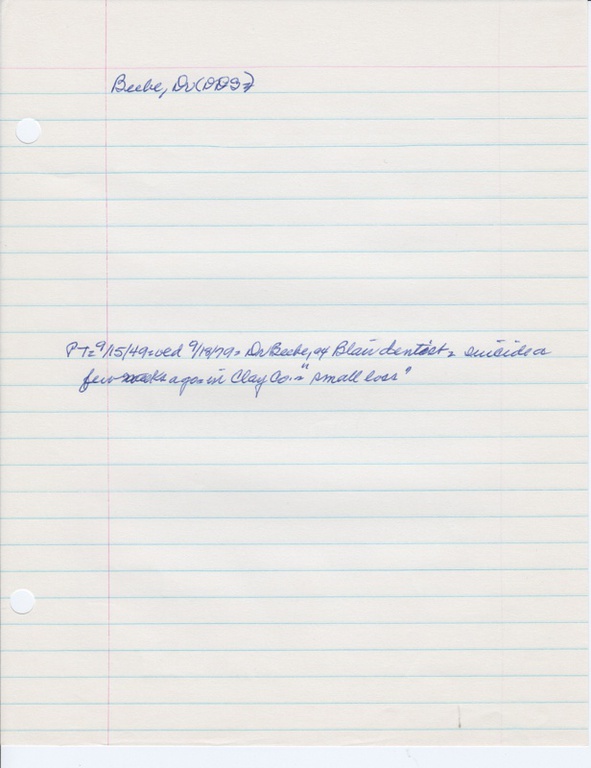 Beebe, Dr (DDS)
PT= 9/15/49= ved 9/19/79= Dr Beebe, ex Blair dentist= suicide a
few weeks ago= in Clay Co.= "small loss"